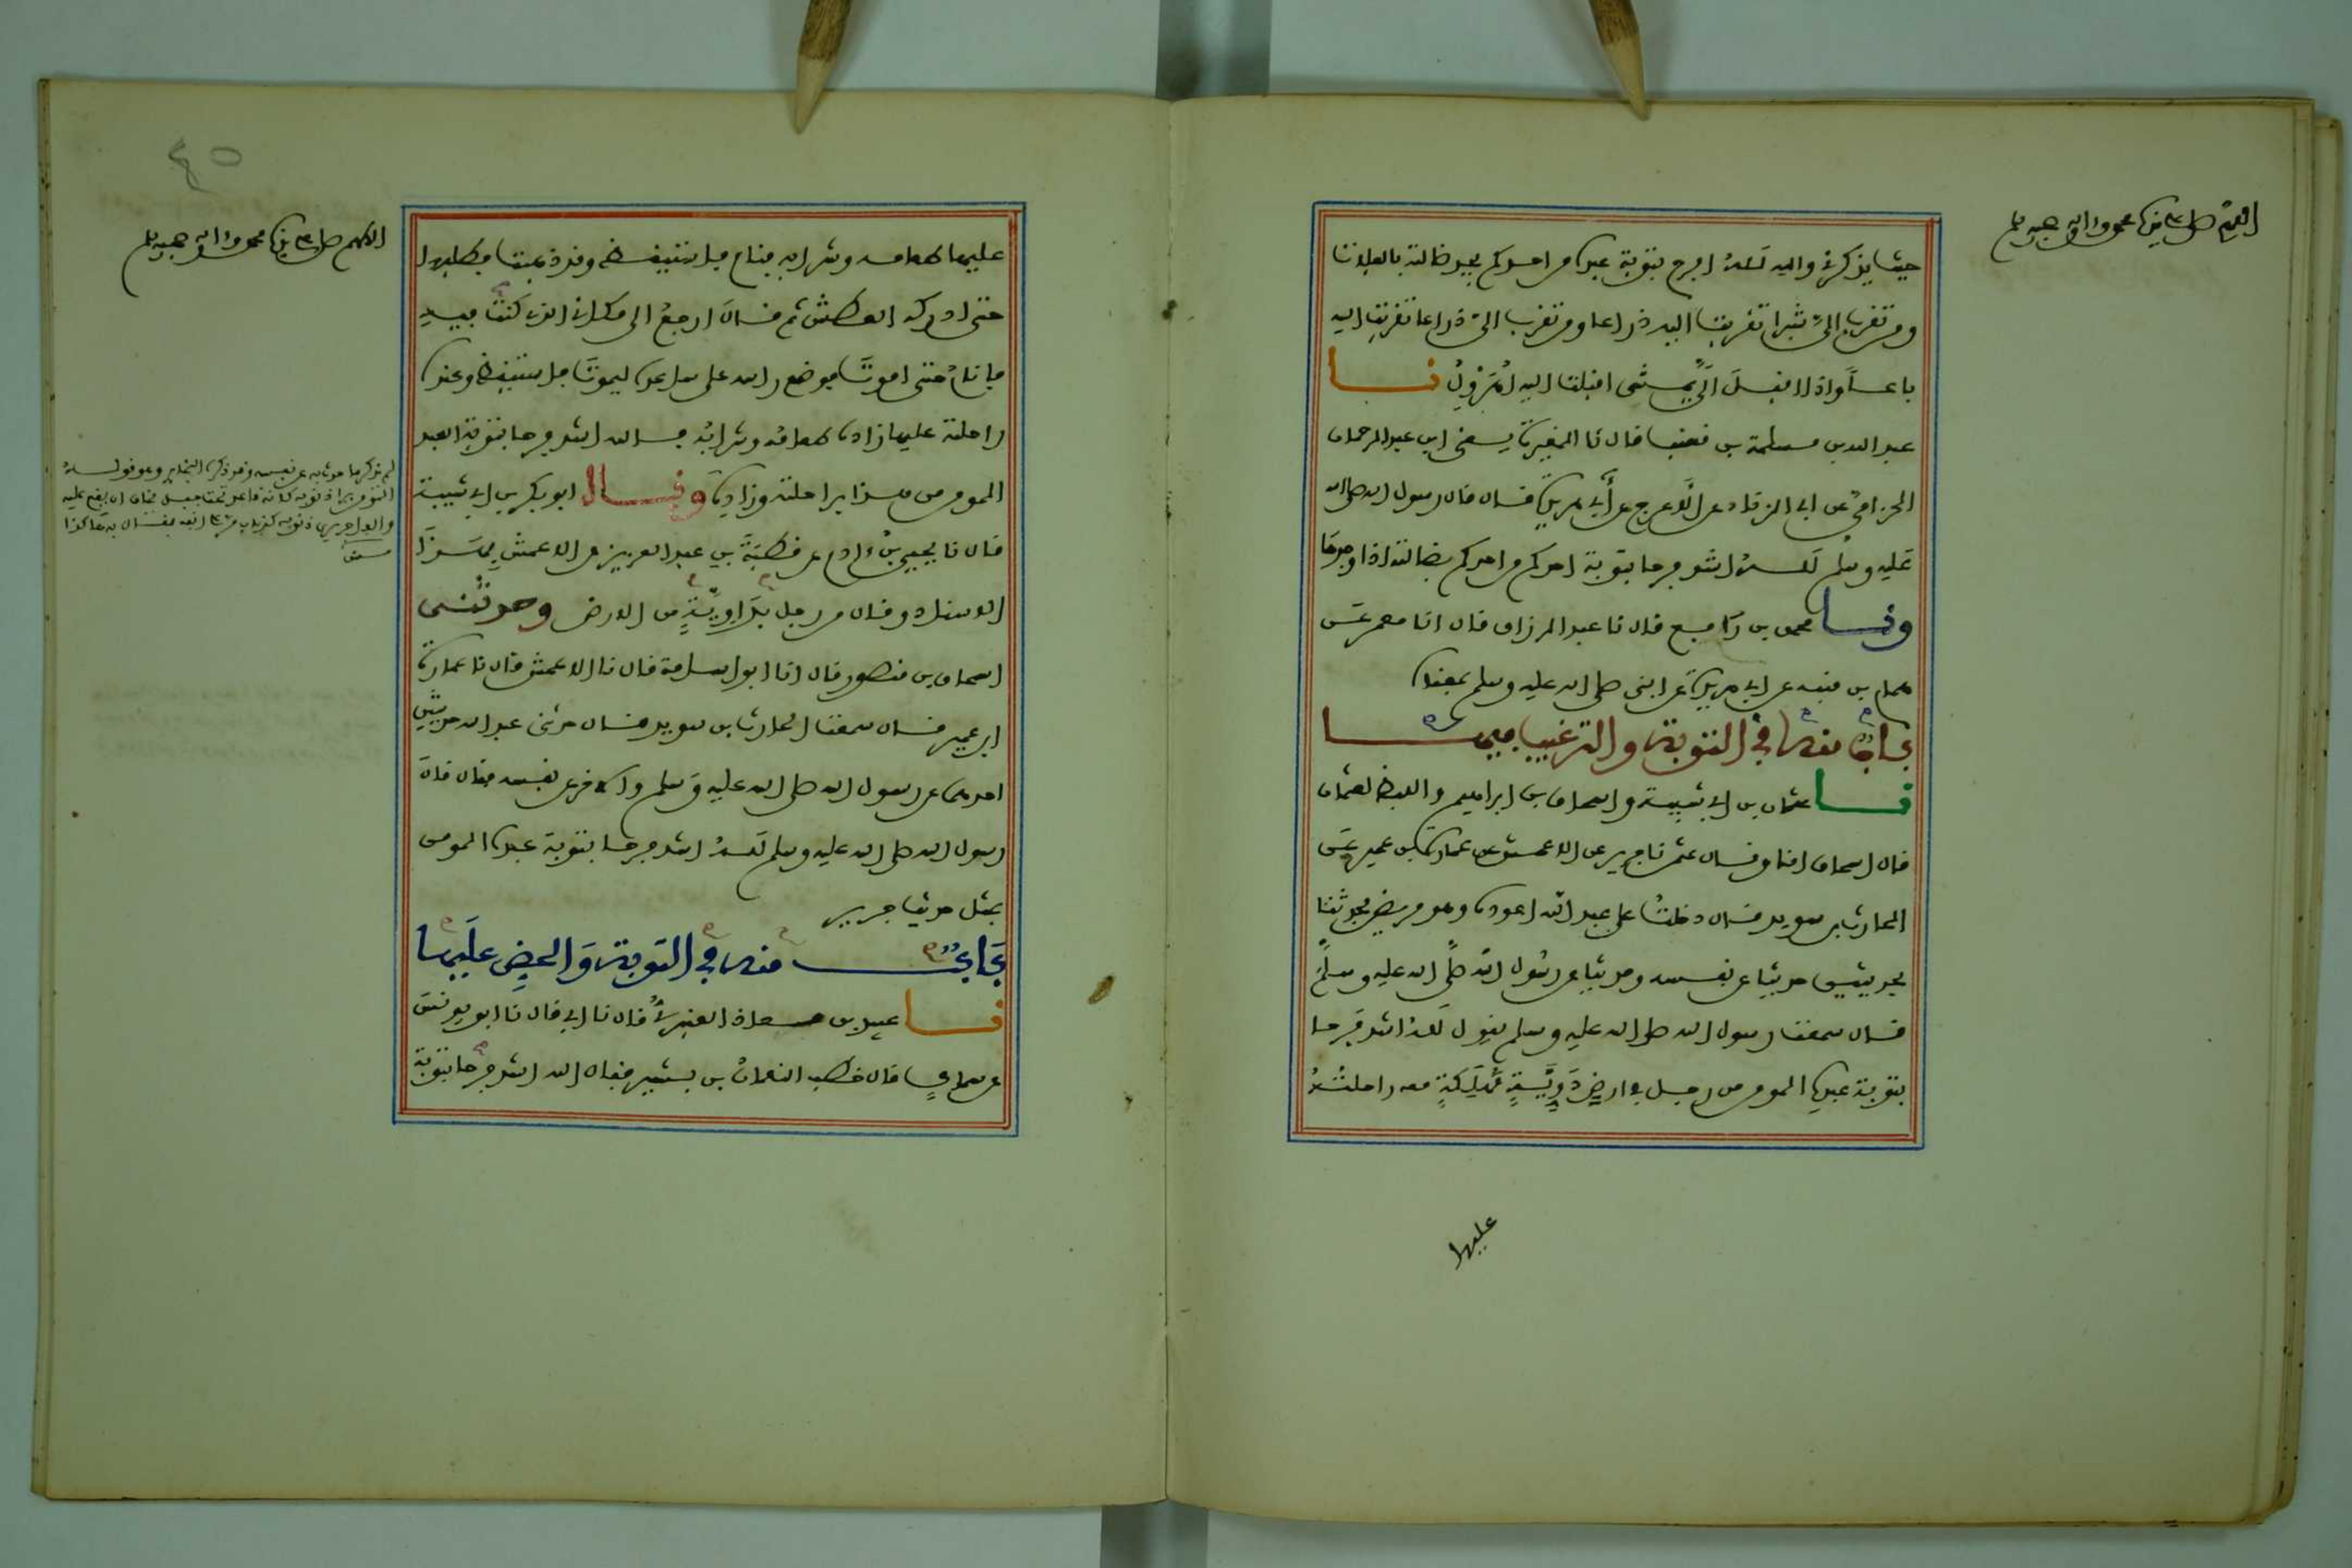 اللهم صل على سيدنا محمد وءاله وصحبه وسلم
حيث يذكرني والله لله افرح بتوبة عبده من احدكم يجد ضالته بالفلاة
ومن تقرب الي شبرا تقربت اليه ذراعا ومن تقرب الي ذراعا تقربت اليه
باعا واذا اقبل الي يمشي اقبلت اليه اهرول نا
عبد الله بن مسلمة بن قعنب قال نا المغيرة يعني ابن عبد الرحمان
الحزامي عن ابي الزناد عن الاعرج عن أبي هريرة قال قال رسول الله صلى الله
عليه وسلم لله اشد فرحا بتوبة احدكم من احدكم بضالته اذا وجدها
ونا محمد بن رافع قال نا عبد الرزاق قال انا معمر عن
همام بن منبه عن ابي هريرة عن النبي صلى الله عليه وسلم بمعناه
باب منه في التوبة والترغيب فيها
نا عثمان بن ابي شيبة واسحاق بن ابراهيم واللفظ لعثمان
قال اسحاق انا وقال عثمن نا جرير عن الاعمش عن عمارة بن عمير عن
الحارث بن سويد قال دخلت على عبد الله اعوده وهو مريض فحدثنا
بحديثين حديثا عن نفسه وحديثا عن رسول الله صلى الله عليه وسلم
قال سمعت رسول الله صلى الله عليه وسلم يقول لله اشد فرحا
بتوبة عبده المومن من رجل في ارض دوية مهلكة معه راحلته
عليها
٤٥
اللهم صل على سيدنا محمد وءاله وصحبه وسلم
عليها طعامه وشرابه فنام فاستيقظ وقد ذهبت فطلبها
حتى ادركه العطش ثم قال ارجع الى مكاني الذي كنت فيه
فانام حتى اموت فوضع راسه على ساعده ليموت فاستيقظ وعنده
راحلته عليها زاده طعامه وشرابه فالله اشد فرحا بتوبة العبد
المومن من هذا براحلته وزاده وقال ابو بكر بن ابي شيبة
قال نا يحيى بن ءادم عن قطبة بن عبد العزيز عن الاعمش بهذا
الاسناد وقال من رجل بداوية من الارض وحدثني
اسحاق بن منصور قال انا ابو اسامة قال نا الاعمش قال نا عمارة
ابن عمير قال سمعت الحارث بن سويد قال حدثني عبد الله حديثين
احدهما عن رسول الله صلى الله عليه وسلم والاخر عن نفسه فقال قال
رسول الله صلى الله عليه وسلم لله اشد فرحا بتوبة عبده المومن
بمثل حديث جرير
باب منه في التوبة والحض عليها
نا عبيد بن معاذ العنبري قال نا ابي قال نا ابو يونس
عن سماك قال خطب النعمان بن بشير فقال الله اشد فرحا بتوبة
لم يذكر ما حدثه به عن نفسه وقد ذكره البخاري وهو قوله
المومن يرى ذنوبه كانه قاعد تحت جبل يخاف ان يقع عليه
والفاجر يرى ذنوبه كذباب مر على انفه فقال به هكذا